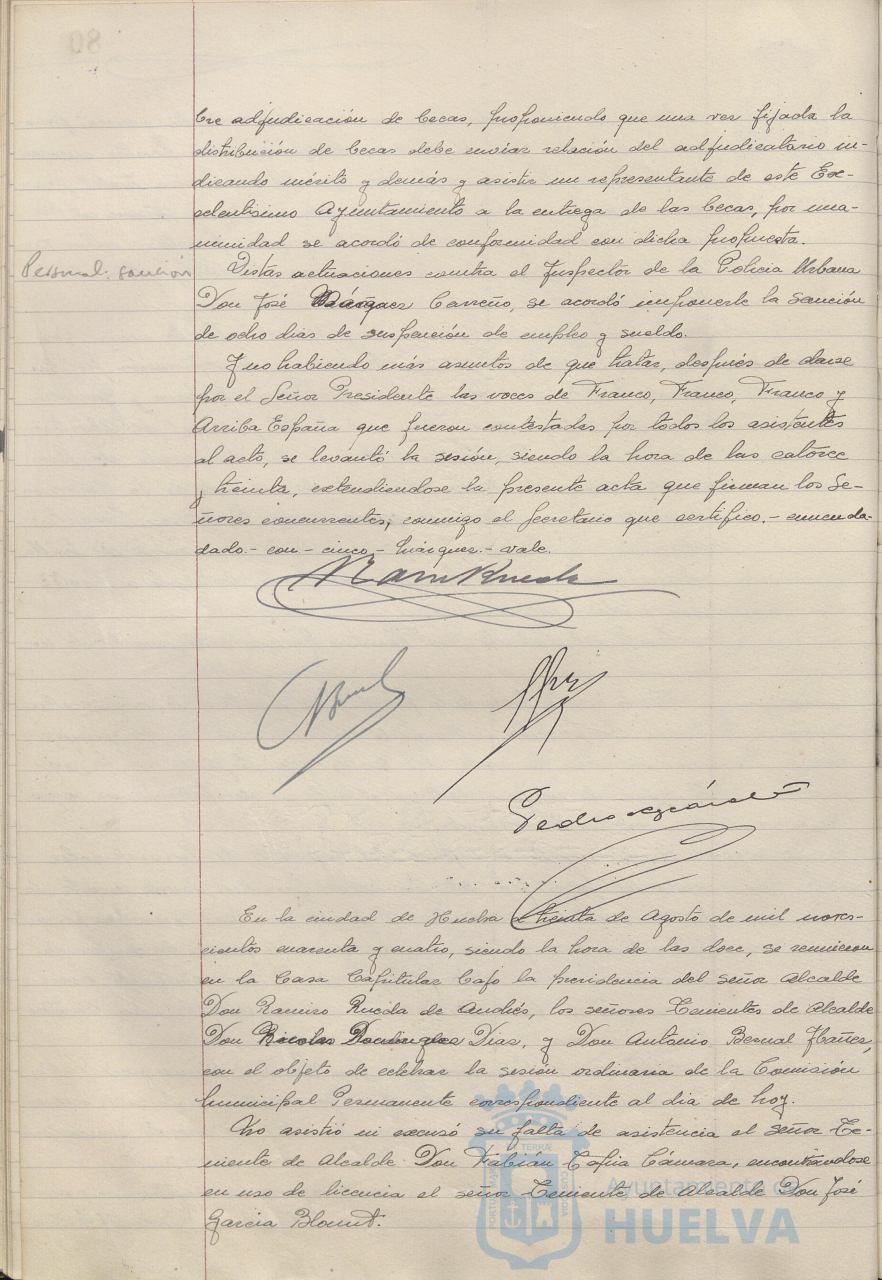 bre adjudicación de becas, proponiendo que una vez fijada la
distribución de becas debe enviar relación del adjudicatario in-
dicando mérito y demás y asistir un representante de este Exc-
celentísimo Ayuntamiento a la entrega de las becas, por una-
nimidad se acordó de conformidad con dicha propuesta.
Personal: sanción
Vistas actuaciones contra el Inspector de la Policia Urbana
Don José Márquez Carreño, se acordó imponerle la sanción
de ocho dias de suspención de empleo y sueldo.
Y no habiendo más asuntos de que tratar, después de darse
por el Señor Presidente las voces de Franco, Franco, Franco y
Arriba España que fueron contestadas por todos los asistentes
al acto, se levantó la sesión, siendo la hora de las catorce
y treinta, extendiendose la presente acta que firman los Se-
ñores concurrentes, conmigo el Secretario que certifico.- enmenda-
dado.- con - cinco - Márquez.- vale.
Pedro
En la ciudad de Huelva a treinta de Agosto de mil nove-
cientos cuarenta y cuatro, siendo la hora de las doce, se reunieron
en la Casa Capitular bajo la presidencia del señor Alcalde
Don Ramiro Rueda de Andrés, los señores Tenientes de Alcalde
Don Nicolas Dominguez Dias, y Don Antonio Bernal Ibañez,
con el objeto de celebrar la sesión ordinaria de la Comisión
Municipal Permanente correspondiente al dia de hoy.
No asistió ni excusó su falta de asistencia el señor Te-
niente de Alcalde Don Fabián Cámara, encontrandose
en uso de licencia el señor Teniente de Alcalde Don José
Garcia Blount.
Ayuntamiento de
HUELVA